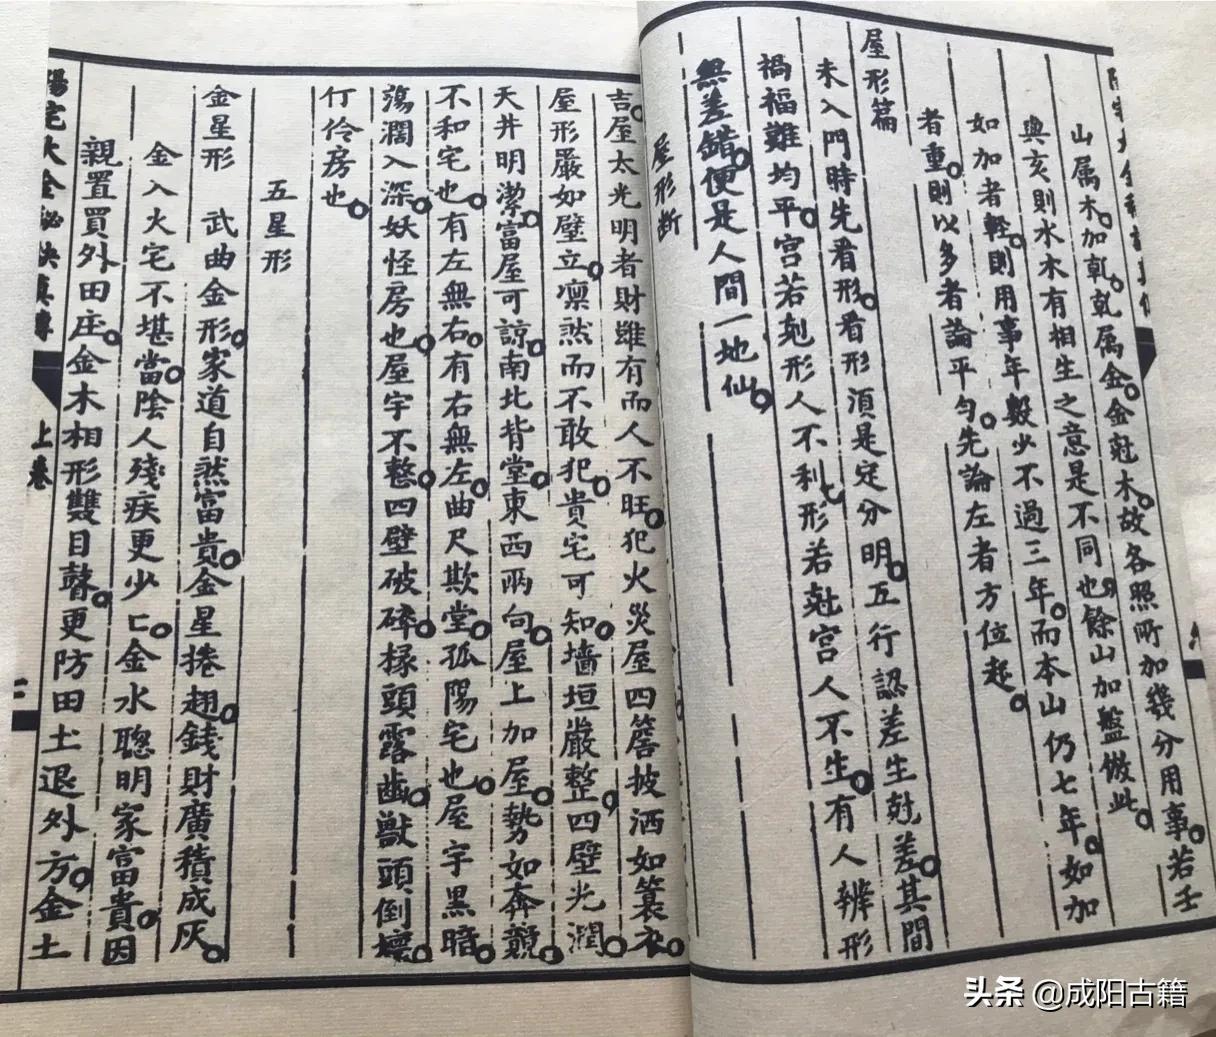 山属木加乹乹属金金尅木故各照所加幾分用事若壬
與亥則水木有相生之意是不同也餘山加盤倣此
如加者輕則用事年數少不過三年而本山仍七年如加
者重則以多者論平勻先論左者方位起
屋形篇
未入門時先看形看形須是定分明五行認差生尅差其間
禍福難均平宮若尅形人不利形若尅宮人不生有人辨形
無差錯便是人間一地仙
屋形断
吉屋太光明者財雖有而人不旺犯火災屋四簷披洒如簑衣
屋形嚴如壁立凛然而不敢犯貴宅可知墻垣嚴整四壁光潤
天井明潔富屋可諒南北背堂東西兩向屋上加屋勢如奔競
不和宅也有左無右有右無左曲尺欺堂孤陽宅也屋宇黑暗
蕩濶入深妖怪房也屋宇不整四壁破碎椽頭露齒獸頭倒壞
仃伶房也
五星形
金星形 武曲金形家道自然富貴金星捲趐錢財廣積成灰
金入火宅不堪當陰人殘疾更少亡金水聰明家富貴因
親置買外田庄金木相形雙目瞽更防田土退外方金土
陽宅大全秘訣真傳
上卷
头条 @成阳古籍